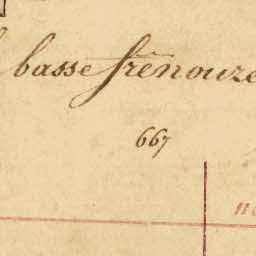 basse frenouze
667